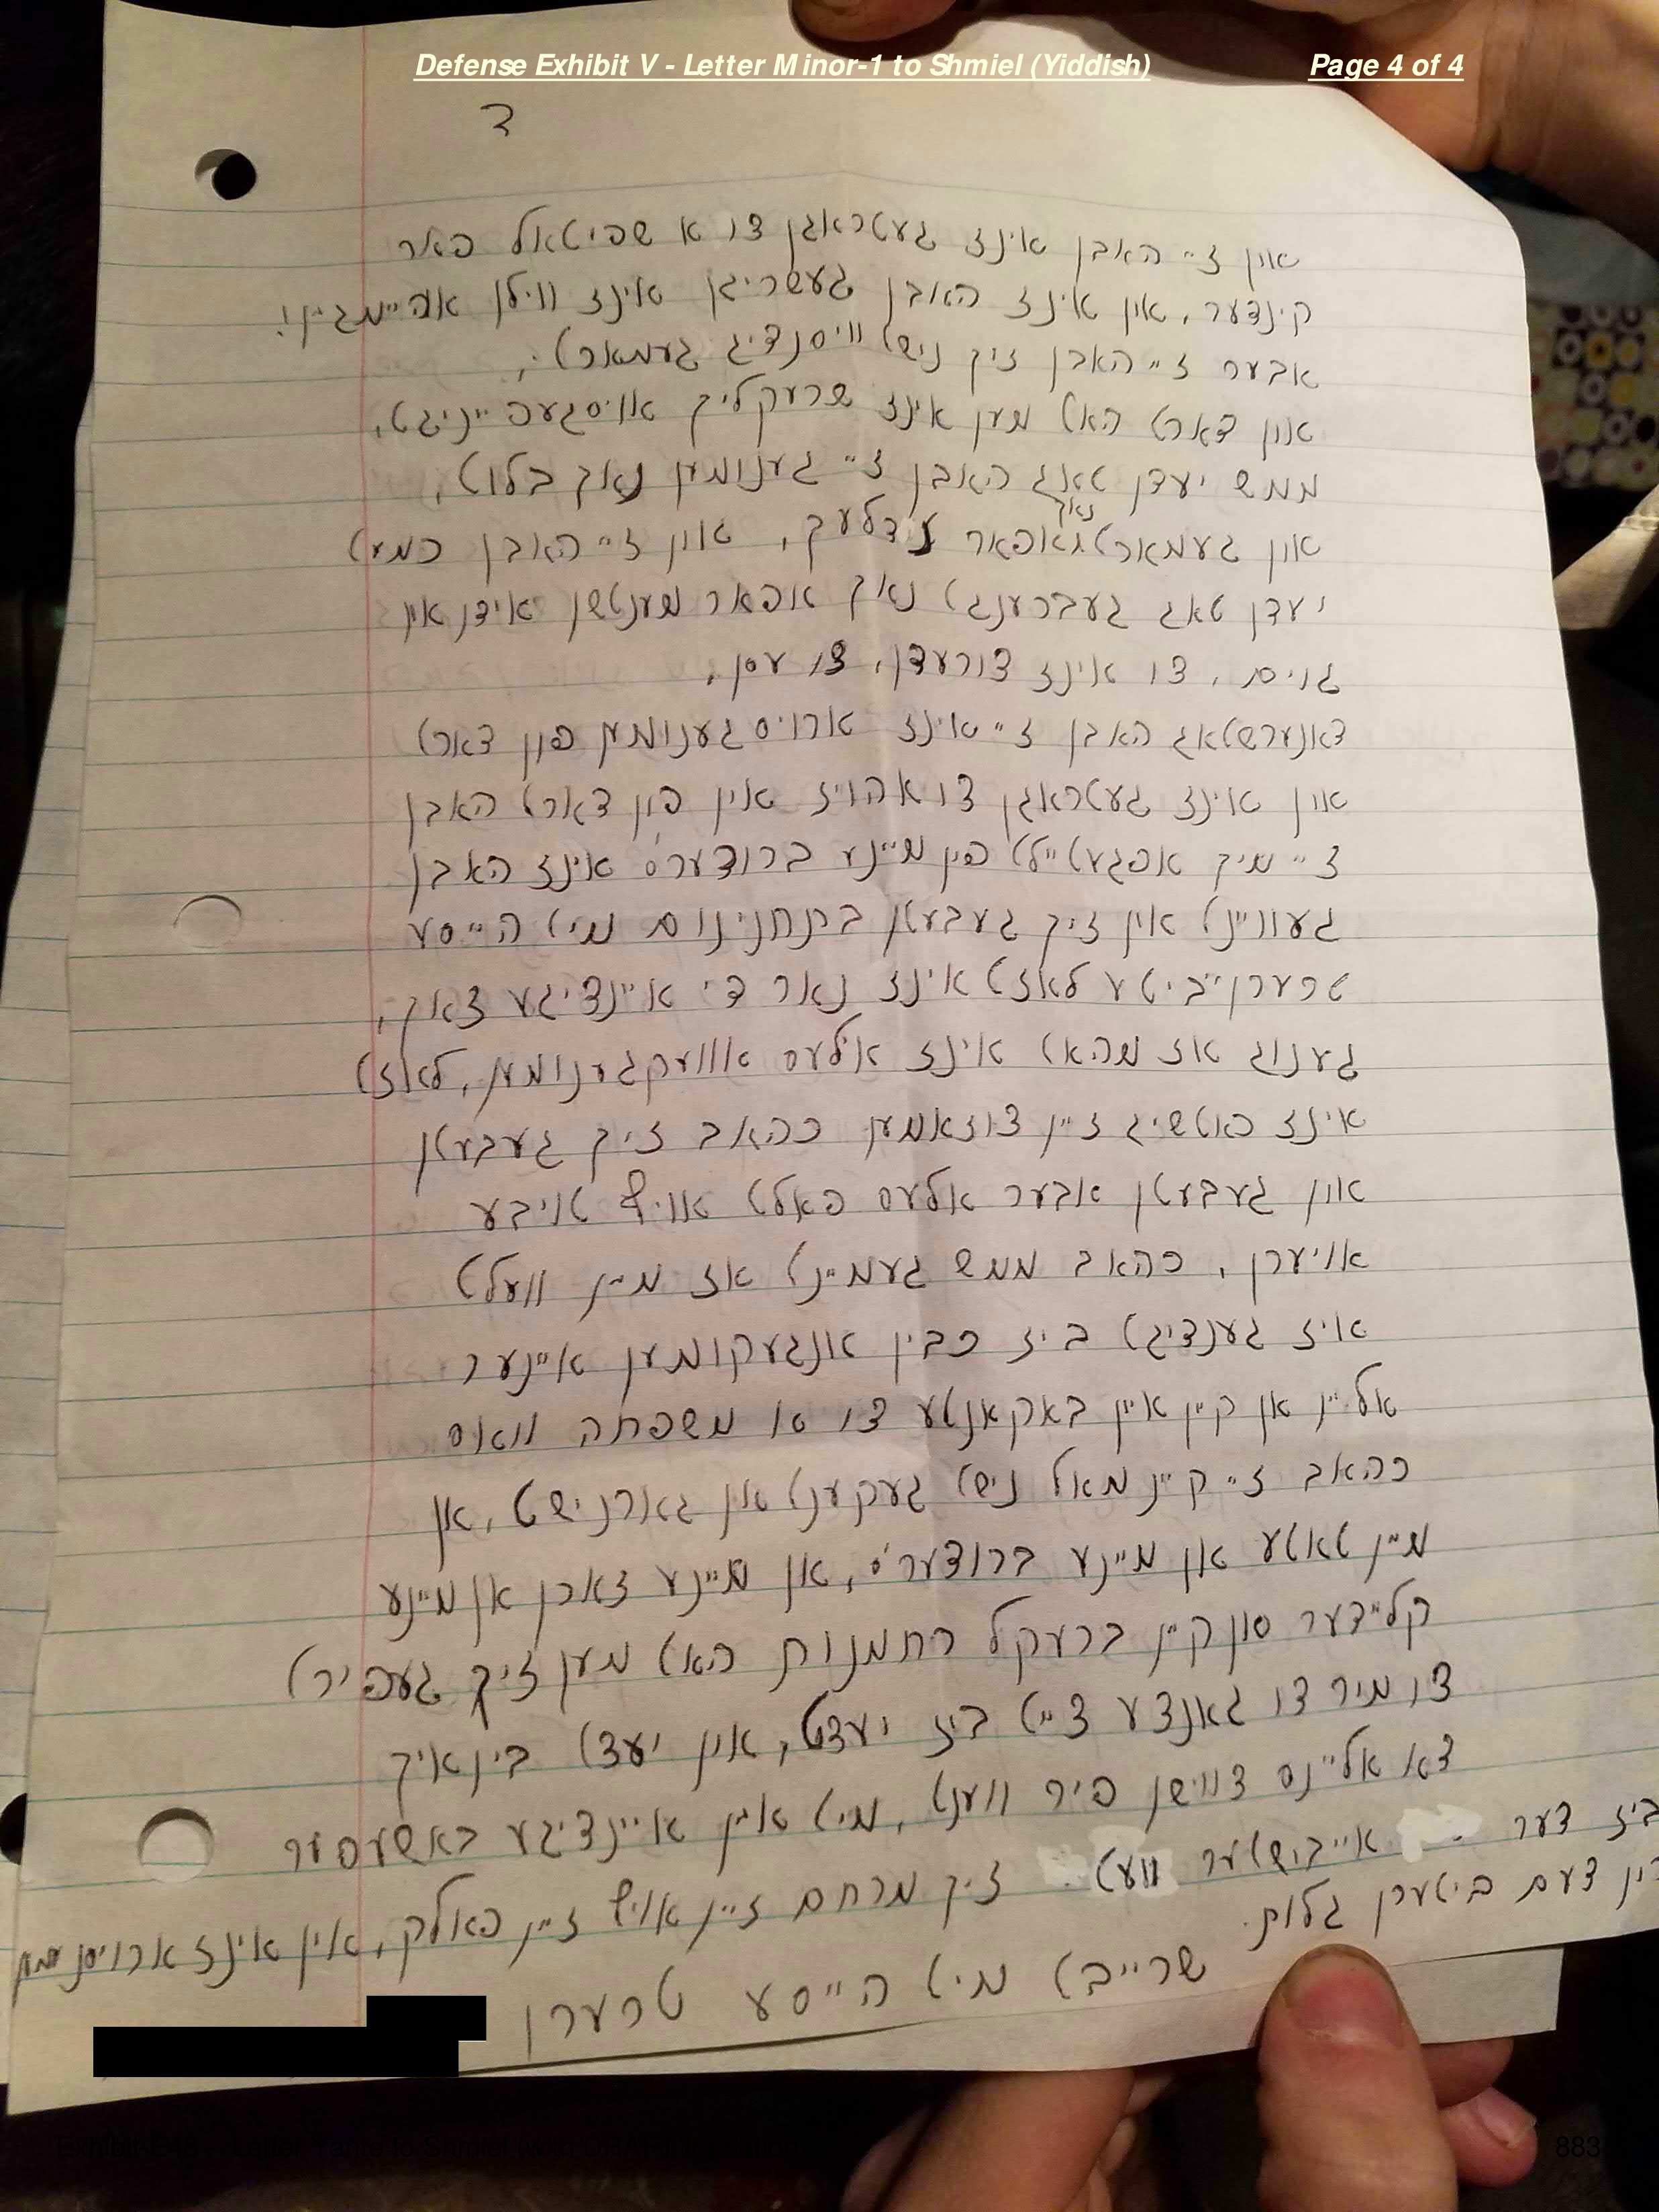 Defense Exhibit V - Letter Minor-1 to Shmiel (Yiddish) Page 4 of 4
ד
און ז״ האבן אינז געטראגן צו א שפיטאל פאר
קינדער, אין אינז האבן געשריגן אינז ווילן אה״מג״ן!
אבער ז״ האבן זיך נישט וויסנדיג געמאכט,
און דארט האט מען אינז שרעקליך אויסגעפ״ניגט,
ממש יעדן טאג האבן ז״ גענומען נאך בלוט,
און געמאכט נאך אפאר לעך, און ז״ האבן כמעט
יעדן טאג געברענגט נאך אפאר מענטשן אידן אין
גוים, צו אינז צורעדן, צו עסן,
דאנערשטאג האבן ז״ אינז ארויסגענומען פון דארט
און אינז געטראגן צו אהויז אין פון דארט האבן
ז״ מיך אפגעט״לט פין מ״נע ברודער'ס אינז האבן
געוו״נט אין זיך געבעטן בתחנינום מיט ה״סע
טרערן ביטע לאזט אינז נאר די א״נציגע זאך,
גענוג אז מהאט אינז אלעס אוועקגענומען, לאזט
אינז כאטשיג ז״ן צוזאמען כהאב זיך געבעטן
און געבעטן אבער אלעס פאלט אויף טויבע
אויערן, כהאב ממש געמ״נט אז מ״ן וועלט
איז גענדיגט ביז כבין אנגעקומען א״נער
אל״ן אן ק״ן א״ן באקאנטע צו א משפחה וואס
כהאב ז״ ק״נמאל נישט געקענט אין גארנישט, אן
מ״ן טאטע אן מ״נע ברודער'ס, אן מ״נע זאכן אן מ״נע
קל״דער סון ק״ן ברעקל רחמנות האט מען זיך געפירט
צו מיר די גאנצע צ״ט ביז יעצט, אין יעצט בין איך
דא אל״נס צווישן פיר ווענט, מיט א״ן א״נציגע באשעפער
ביז דער אייבישטער וועט זיך מרחם ז״ן אויף ז״ן פאלק, אין אינז ארויסנעמען
פין דעם ביטערן גלות.
שרייבט מיט ה״סע טרערן
883